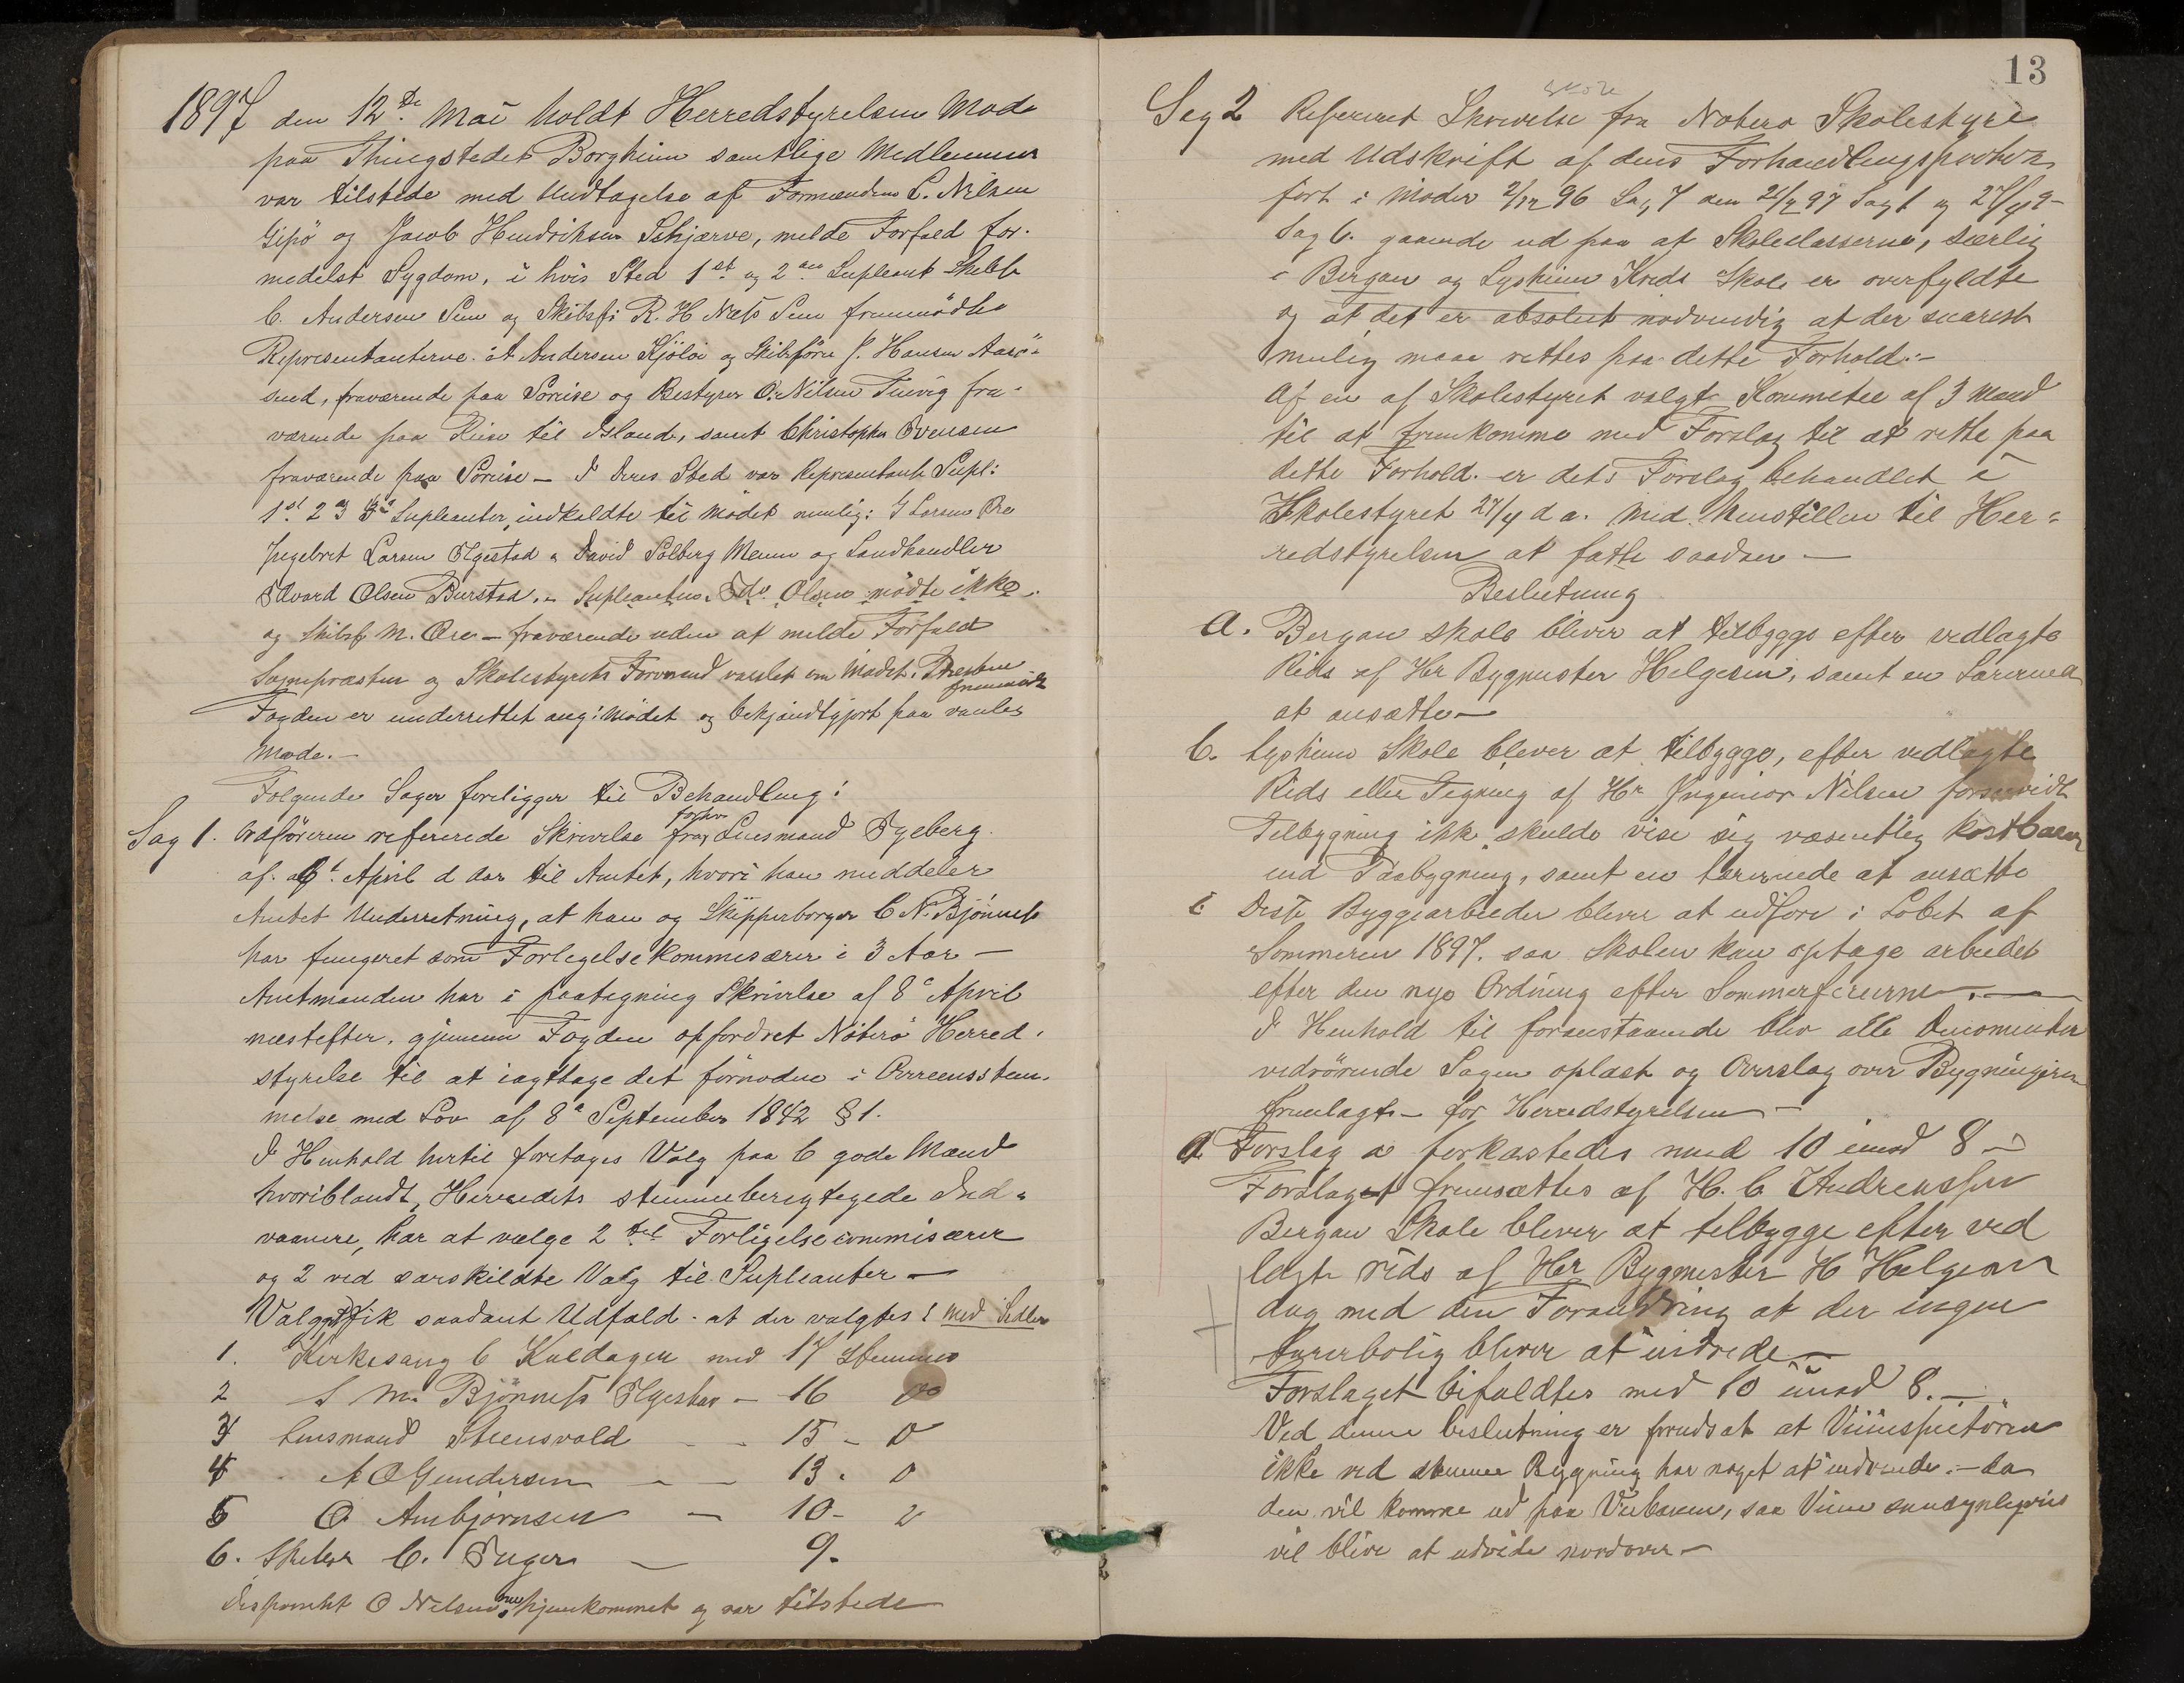 1897 den 12te Mai holdt Herredstyrelsen Møde
paa Thingstedet Borgheim samtlige Medlemmer
var tilstede med Undtagelse af Formændene L. Nilsen
Gipö og Jacob Hendriksen Skjærve, melde Forfald for-
medelst Sygdom, i hvis Sted 1st og 2den Supleant Skibsf
C. Andersen Sem og Skibsf: R. H Næss Sem fremmödte
Representanterne: A Andersen Kjöloi og Skibsförer J. Hansen Aarö-
sund, fraværende paa Söreise og Bestyrer O. Nilsen Tuvig fra-
værende paa Reise til Island, samt Christopher Evensen
fraværende paa Söreise — I deres Sted var Representant Supl:
1st 2 3 Supleanter indkaldte til Mødet nemlig: J Larsen Bro
Ingebret Larsen Elgestad, David Solberg Meum og Landhandler
Edvard Olsen Burstad. — Supleanten Edv. Olsen mödte ikke.
og Skibsf M. Øre — fraværende uden at melde Forfald
Sognepræsten og Skolestyrets Formand varslet om Mødet. Presten
fremmödt
Fogden er underrettet ang: Mödet og bekjendtgjort paa vanlig
Maade. —
Følgende Sager foreligger til Behandling:
Sag 1. Ordföreren refererede Skrivelse fra Lensmand Fyeberg
forhv
af 6t April d Aar til Amtet, hvori han meddeler
Amtet Underretning, at han og Skipperborger C N. Bjönnes
har fungeret som Forlegelseskommisærer i 3 Aar —
Amtmanden har i paategning Skrivelse af 8de April
næstefter, gjennem Fogden opfordret Nöterö Herred-
styrelse til at iagttage det fornødne i Overensstem-
melse med Lov af 8de September 1842 § 1.
I Henhold hertil foretages Valg paa 6 gode Mænd
hvoriblandt, Herredets stemmeberegtigede Ind-
vaanere, har at vælge 2 til Forligelsecommisærer
og 2 ved særskildte Valg til Supleanter —
Valget fik saadant Udfald — at der valgtes: med Sedler
1. Kirkesang C Kaldager med 17 Stemmer
2 S M. Bjönness Elgestad — 16 do
3 Lensmand Steensvold — 15 — do
4 A O Gundersen — — 13 . do
5 O Ambjörnsen — 10 — do
6. Skibsr C. Unger — 9.
Disponent O Nilsen nu hjemkommet og var tilstede
13
Sag 2 Refereret Skrivelse fra Nøterø Skolestyre
skole
med Udskrift af dens Forhandlingsprotokol
ført i Møder 2/12 96 Sag 7 den 26/2 97 Sag 1 og 27/4 97
Sag 6. gaaende ud paa at Skoleclasserne, særlig
i Bergan og Lysheim Kreds Skole er overfyldte
og at det er absolut nødvendig at der snarest
mulig maa rettes paa dette Forhold. —
Af en af Skolestyret valgt Kommitee af 3 Mænd
til at fremkomme med Forslag til at rette paa
dette Forhold. er dets Forslag behandlet i
Skolestyret 27/4 d a. Med henstillen til Her-
redstyrelsen at fatte saadan —
Beslutning
a. Bergan skole bliver at tilbygge efter vedlagte
Rids af Hr Bygmester Helgesen, samt en Lærerinde
at ansætte —
b. Lysheim Skole bliver at tilbygge, efter vedlagte
Rids eller Tegning af Hr Ingeniør Nilsen forsaavidt
Tilbygning ikke skulde vise sig væsentlig kostbarer
end Paabygning, samt en Lærerinde at ansætte
c Disse Byggearbeider bliver at udføre i Løbet af
Sommeren 1897. saa Skolen kan optage arbeidet
efter den nye Ordning efter Sommerferierne. —
I Henhold til foranstaaende blev alle Documenter
vedrörende Sagen oplæst og Overslag over Bygningerne
fremlagt — for Herredstyrelsen —
a. Forslag a forkastedes med 10 imod 8 —
Forslaget fremsættes af H. C Andreassen
Bergan Skole bliver at tilbygge efter ved
lagte rids af Hr Bygmester H Helgesen
dog med den Forandring at der ingen
Lærerbolig bliver at indrede —
Forslaget bifaldtes med 10 imod 8. —
Ved denne beslutning er forudsat at Veiinspektören
ikke ved denne Bygning har noget at indvende. — da
den vil komme ud paa Veibanen, saa Veien sandsynligvis
vil blive at udvide nordover —